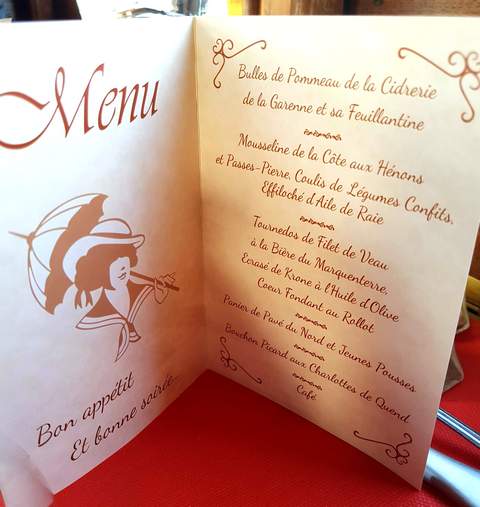 Menu
Bon appétit
Et bonne soirée
Bulles de Pommeau de la Cidrerie
de la Garenne et sa Feuillantine
Mousseline de la Côte aux Hénons
et Passes-Pierre, Coulis de Légumes Confits,
Effiloché d'Aile de Raie
Tournedos de Filet de Veau
à la Bière du Marquenterre,
Ecrasé de Krone à l'Huile d'Olive
Coeur Fondant au Rollot
Panier de Pavé du Nord et Jeunes Pousses
Bouchon Picard aux Charlottes de Quend
Café